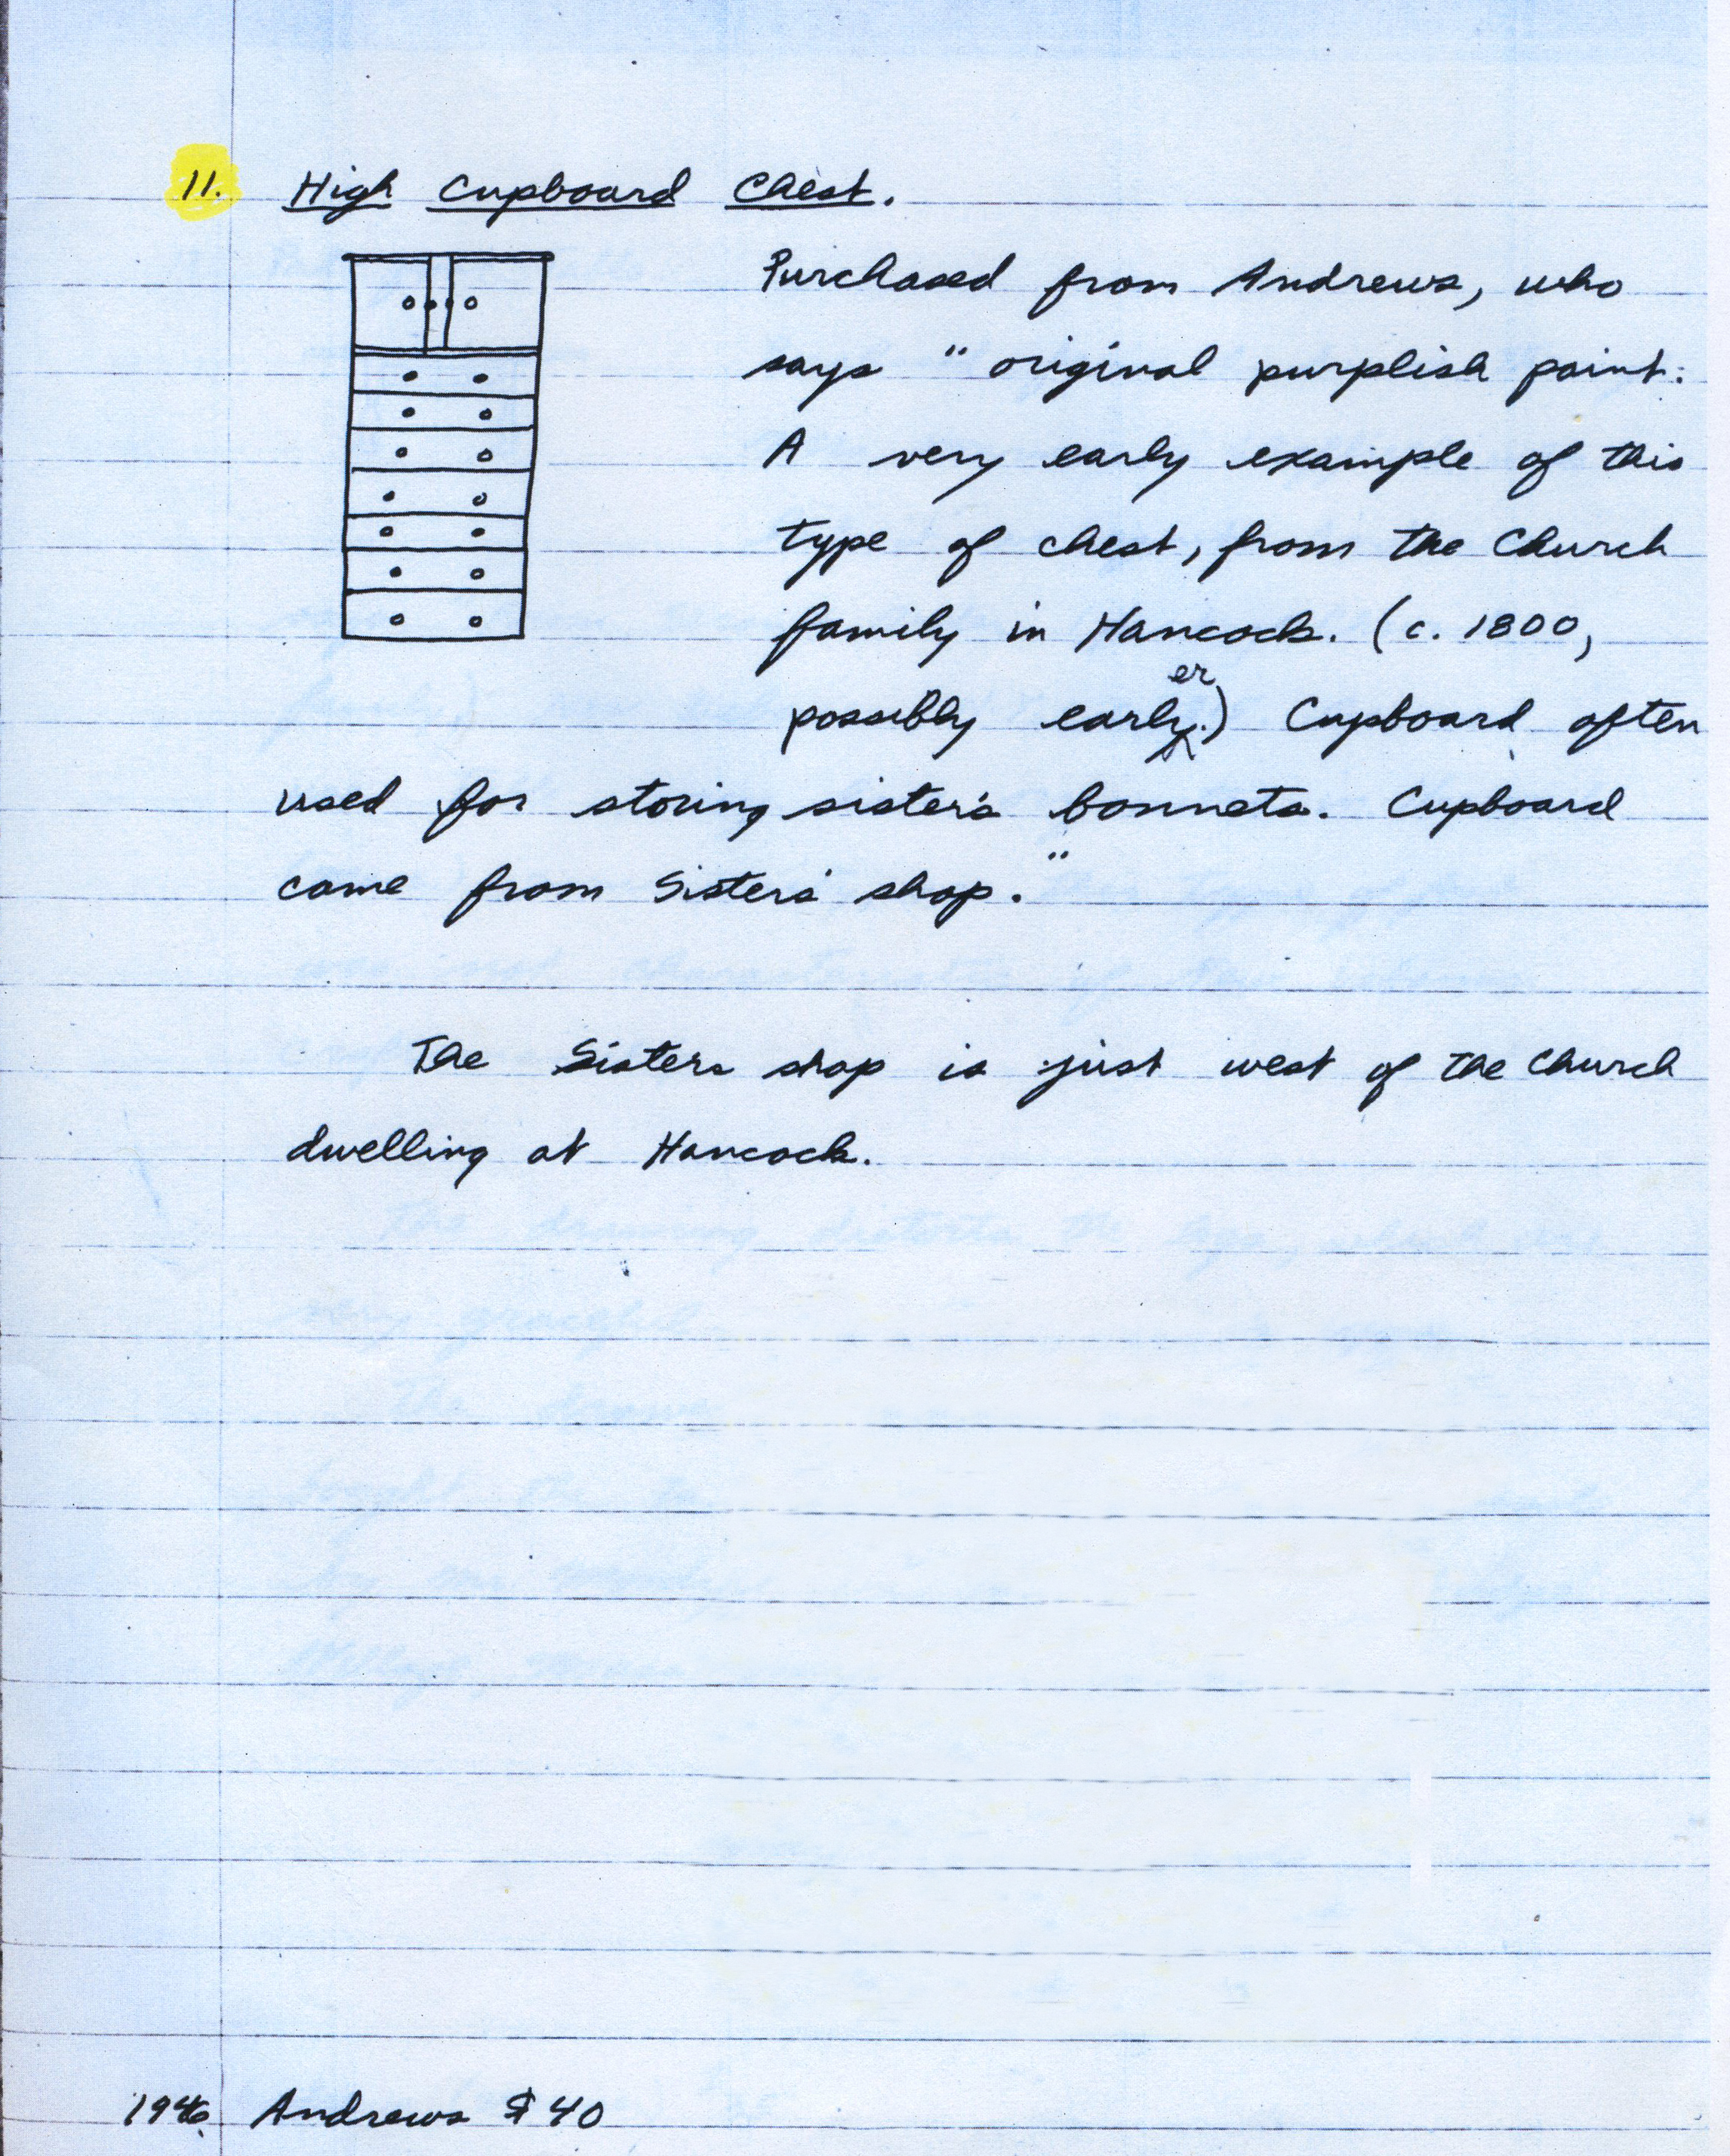 11. High Cupboard Chest.
Purchased from Andrews, who
says "original purplish paint:
A very early example of this
type of chest, from the Church
family in Hancock. (c. 1800,
possibly earlyer.) Cupboard often
used for storing sister's bonnets. Cupboard
came from Sisters' shop."
The Sisters shop is just west of the Church
dwelling at Hancock.
The drawing distorts the legs, which are
very graceful.
1946. Andrews $40